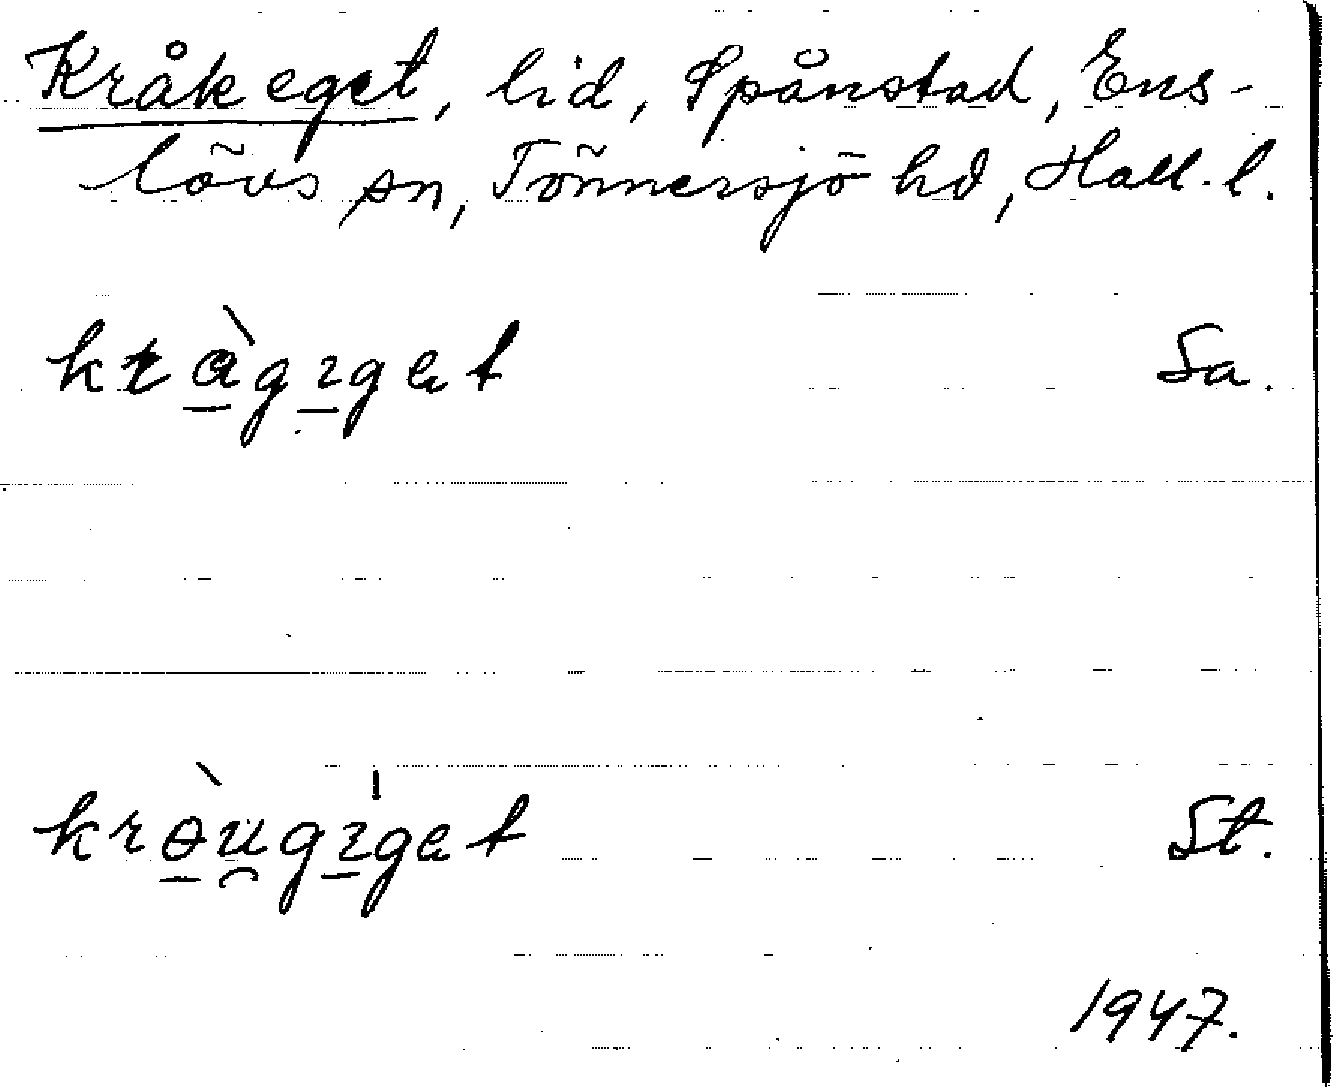 Kråkeget, lid, Spånstad, Ens-
lövs sn, Tönnersjö hd, Hall. l.
kràgıgət Sa.
krɵ̀ugıgət St.
1947.